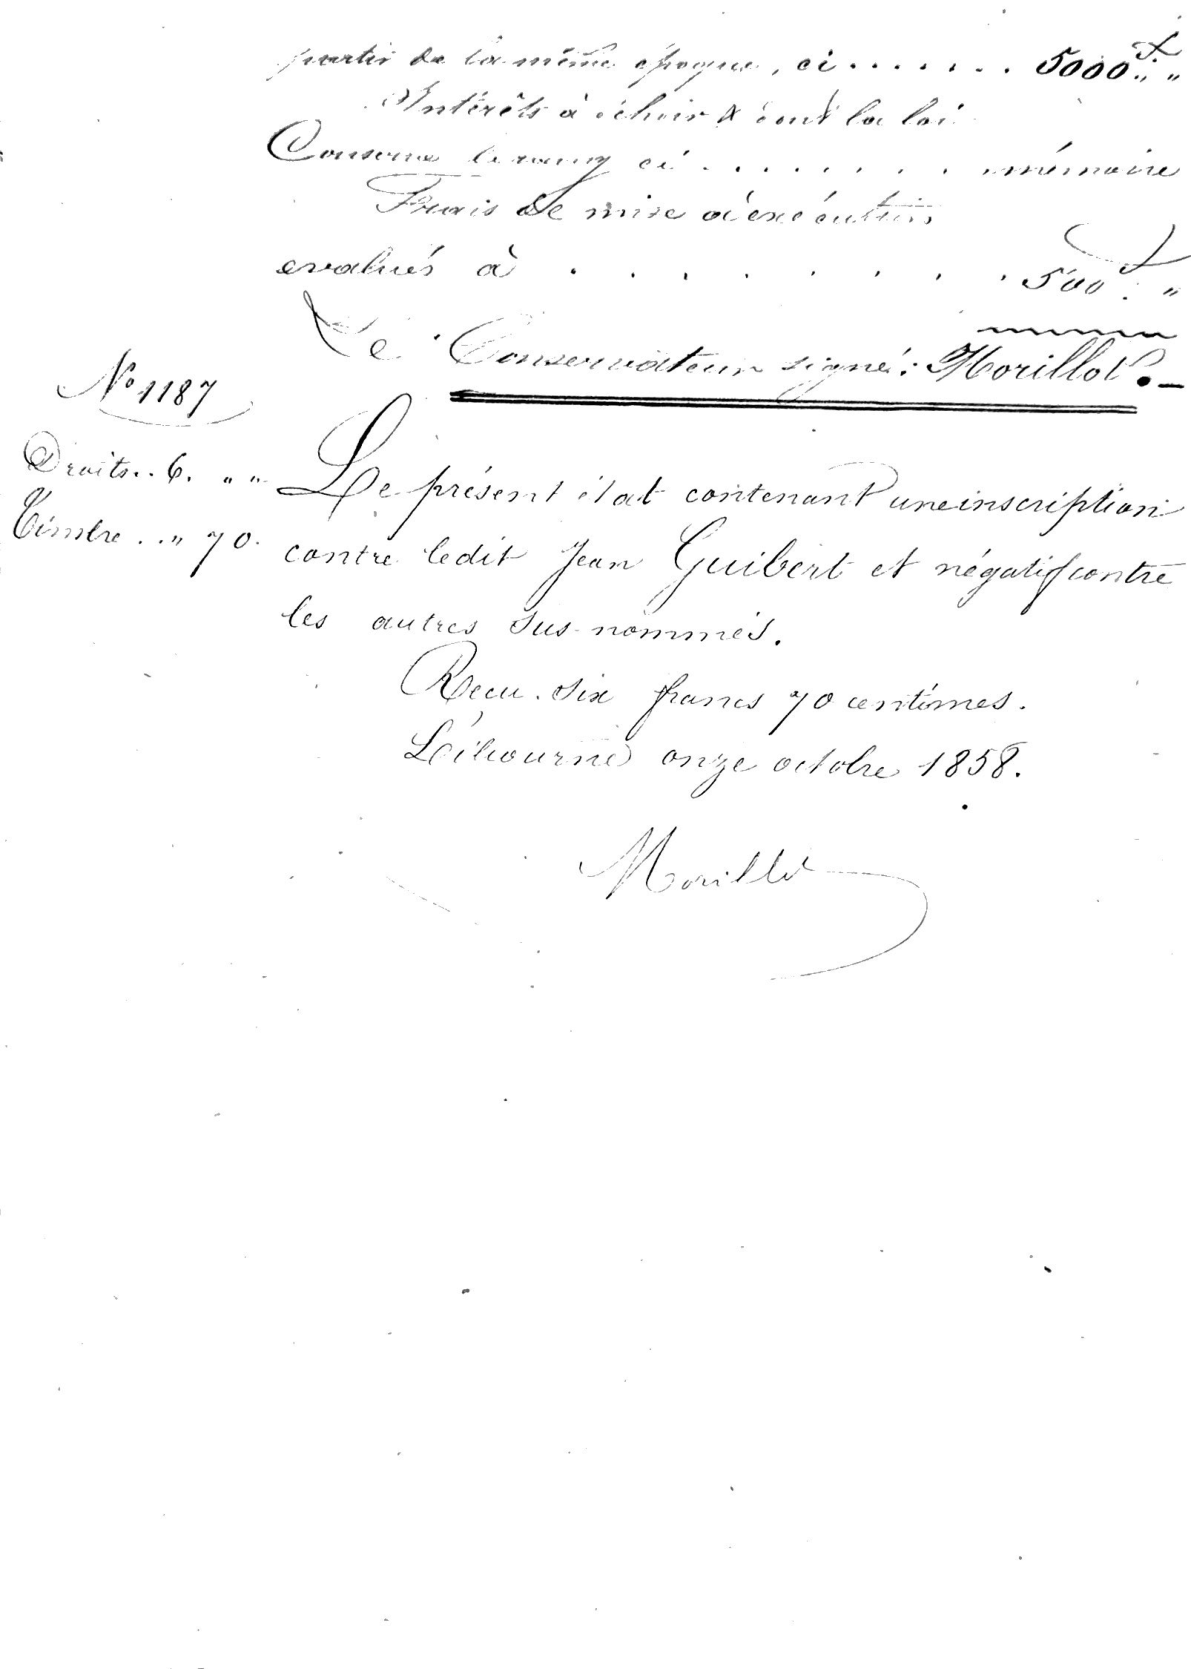 partir de la même époque, ci . . . . . . . 5000f " "
Intérêts à échoir & dont la loi
Conserve le rang ci . . . . . . . . mémoire
Frais de mise à exécution
evalués à . . . . . . . . 500f "
Le Conservateur signé: Morillot. —
N° 1187
Droits . . 6. " "
Timbre . . " 70.
Le présent état contenant une inscription
contre ledit Jean Guibert et négatif contre
les autres sus-nommés.
Reçu six francs 70 centimes.
Libourne onze octobre 1858.
Morillot